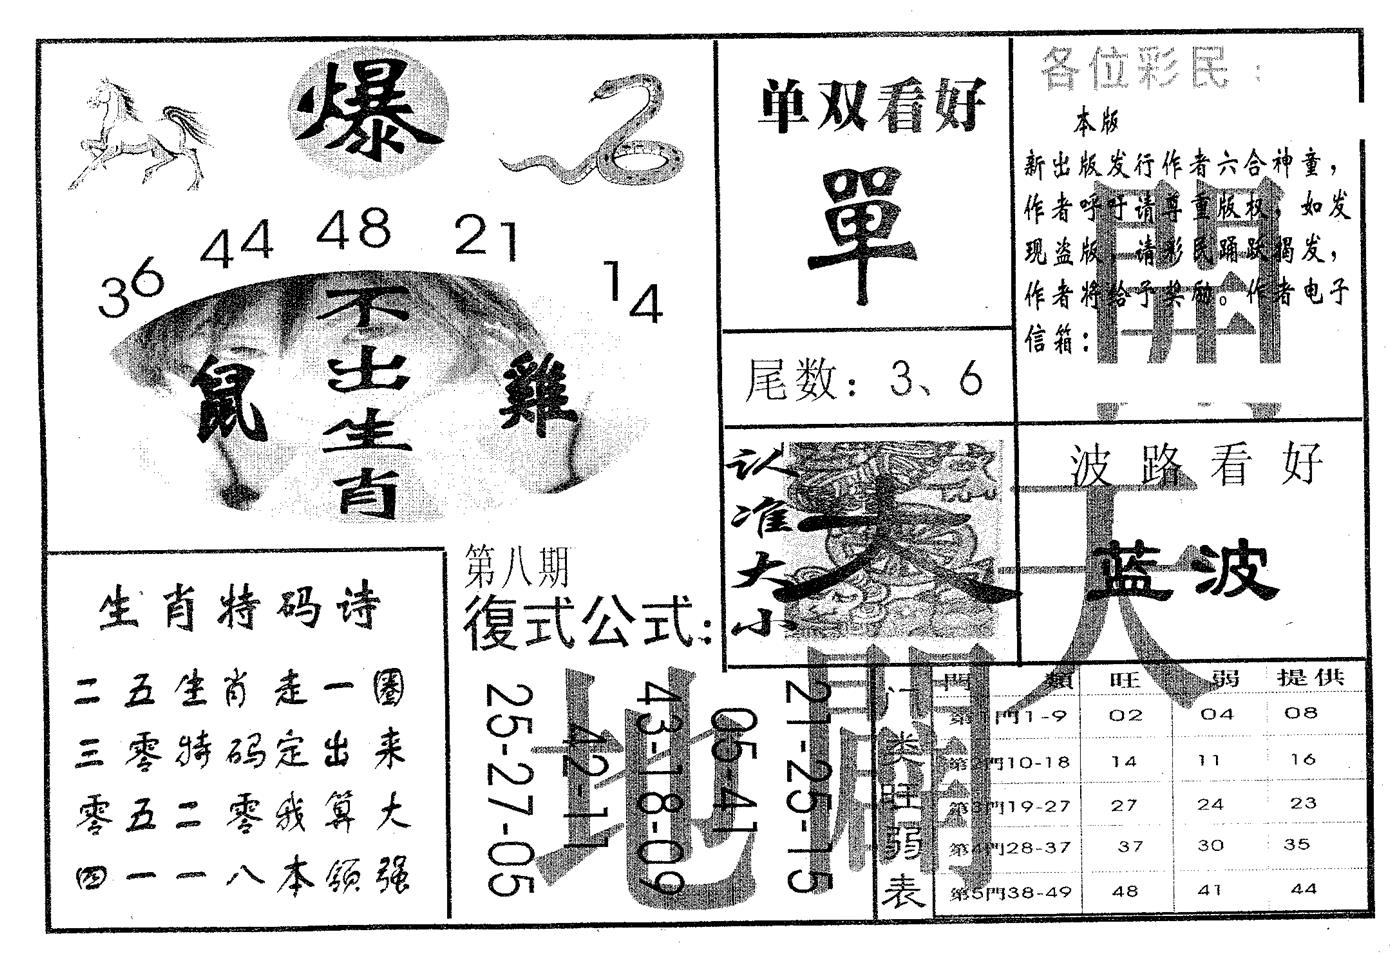 爆
36 44 48 21 14
不出生肖
鼠
雞
单双看好
單
尾数：3、6
各位彩民：
本版
新出版发行作者六合神童，
作者呼吁请尊重版权，如发
现盗版，请彩民踊跃揭发，
作者将给予奖励。作者电子
信箱：
认准大小
大
波路看好
蓝波
生肖特码诗
二五生肖走一圈
三零特码定出来
零五二零我算大
四一一八本领强
第八期
復式公式：
25-27-05
42-11
43-18-09
05-41
21-25-15
開天
地開
门类旺弱表
門類 旺 弱 提供
第1門1-9 02 04 08
第2門10-18 14 11 16
第3門19-27 27 24 23
第4門28-37 37 30 35
第5門38-49 48 41 44